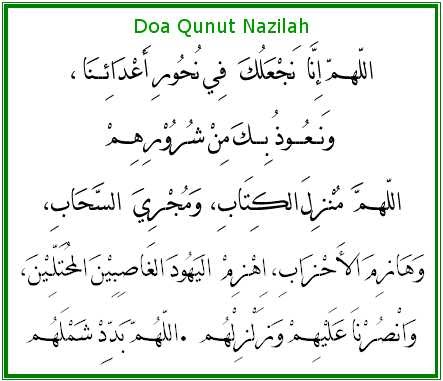 Doa Qunut Nazilah
اللّهمّ إِنَّا نَجْعَلُكَ فِي نُحُورِ أَعْدَائِنَا ،
وَنَعُوذُ بِكَ مِنْ شُرُوْرِهِمْ
اللّهمَّ مُنْزِلَ الكِتَابِ، وَمُجْرِيَ السَّحَابِ،
وَهَازِمَ الأَحْزَابِ، اِهْزِمْ اليَهُودَ الغَاصِبِيْنَ المُحْتَلِّيْنَ،
وَانْصُرْنَا عَلَيْهِمْ وَزَلْزِلْهُم .اللّهُمّ بَدِّدْ شَمْلَهُم